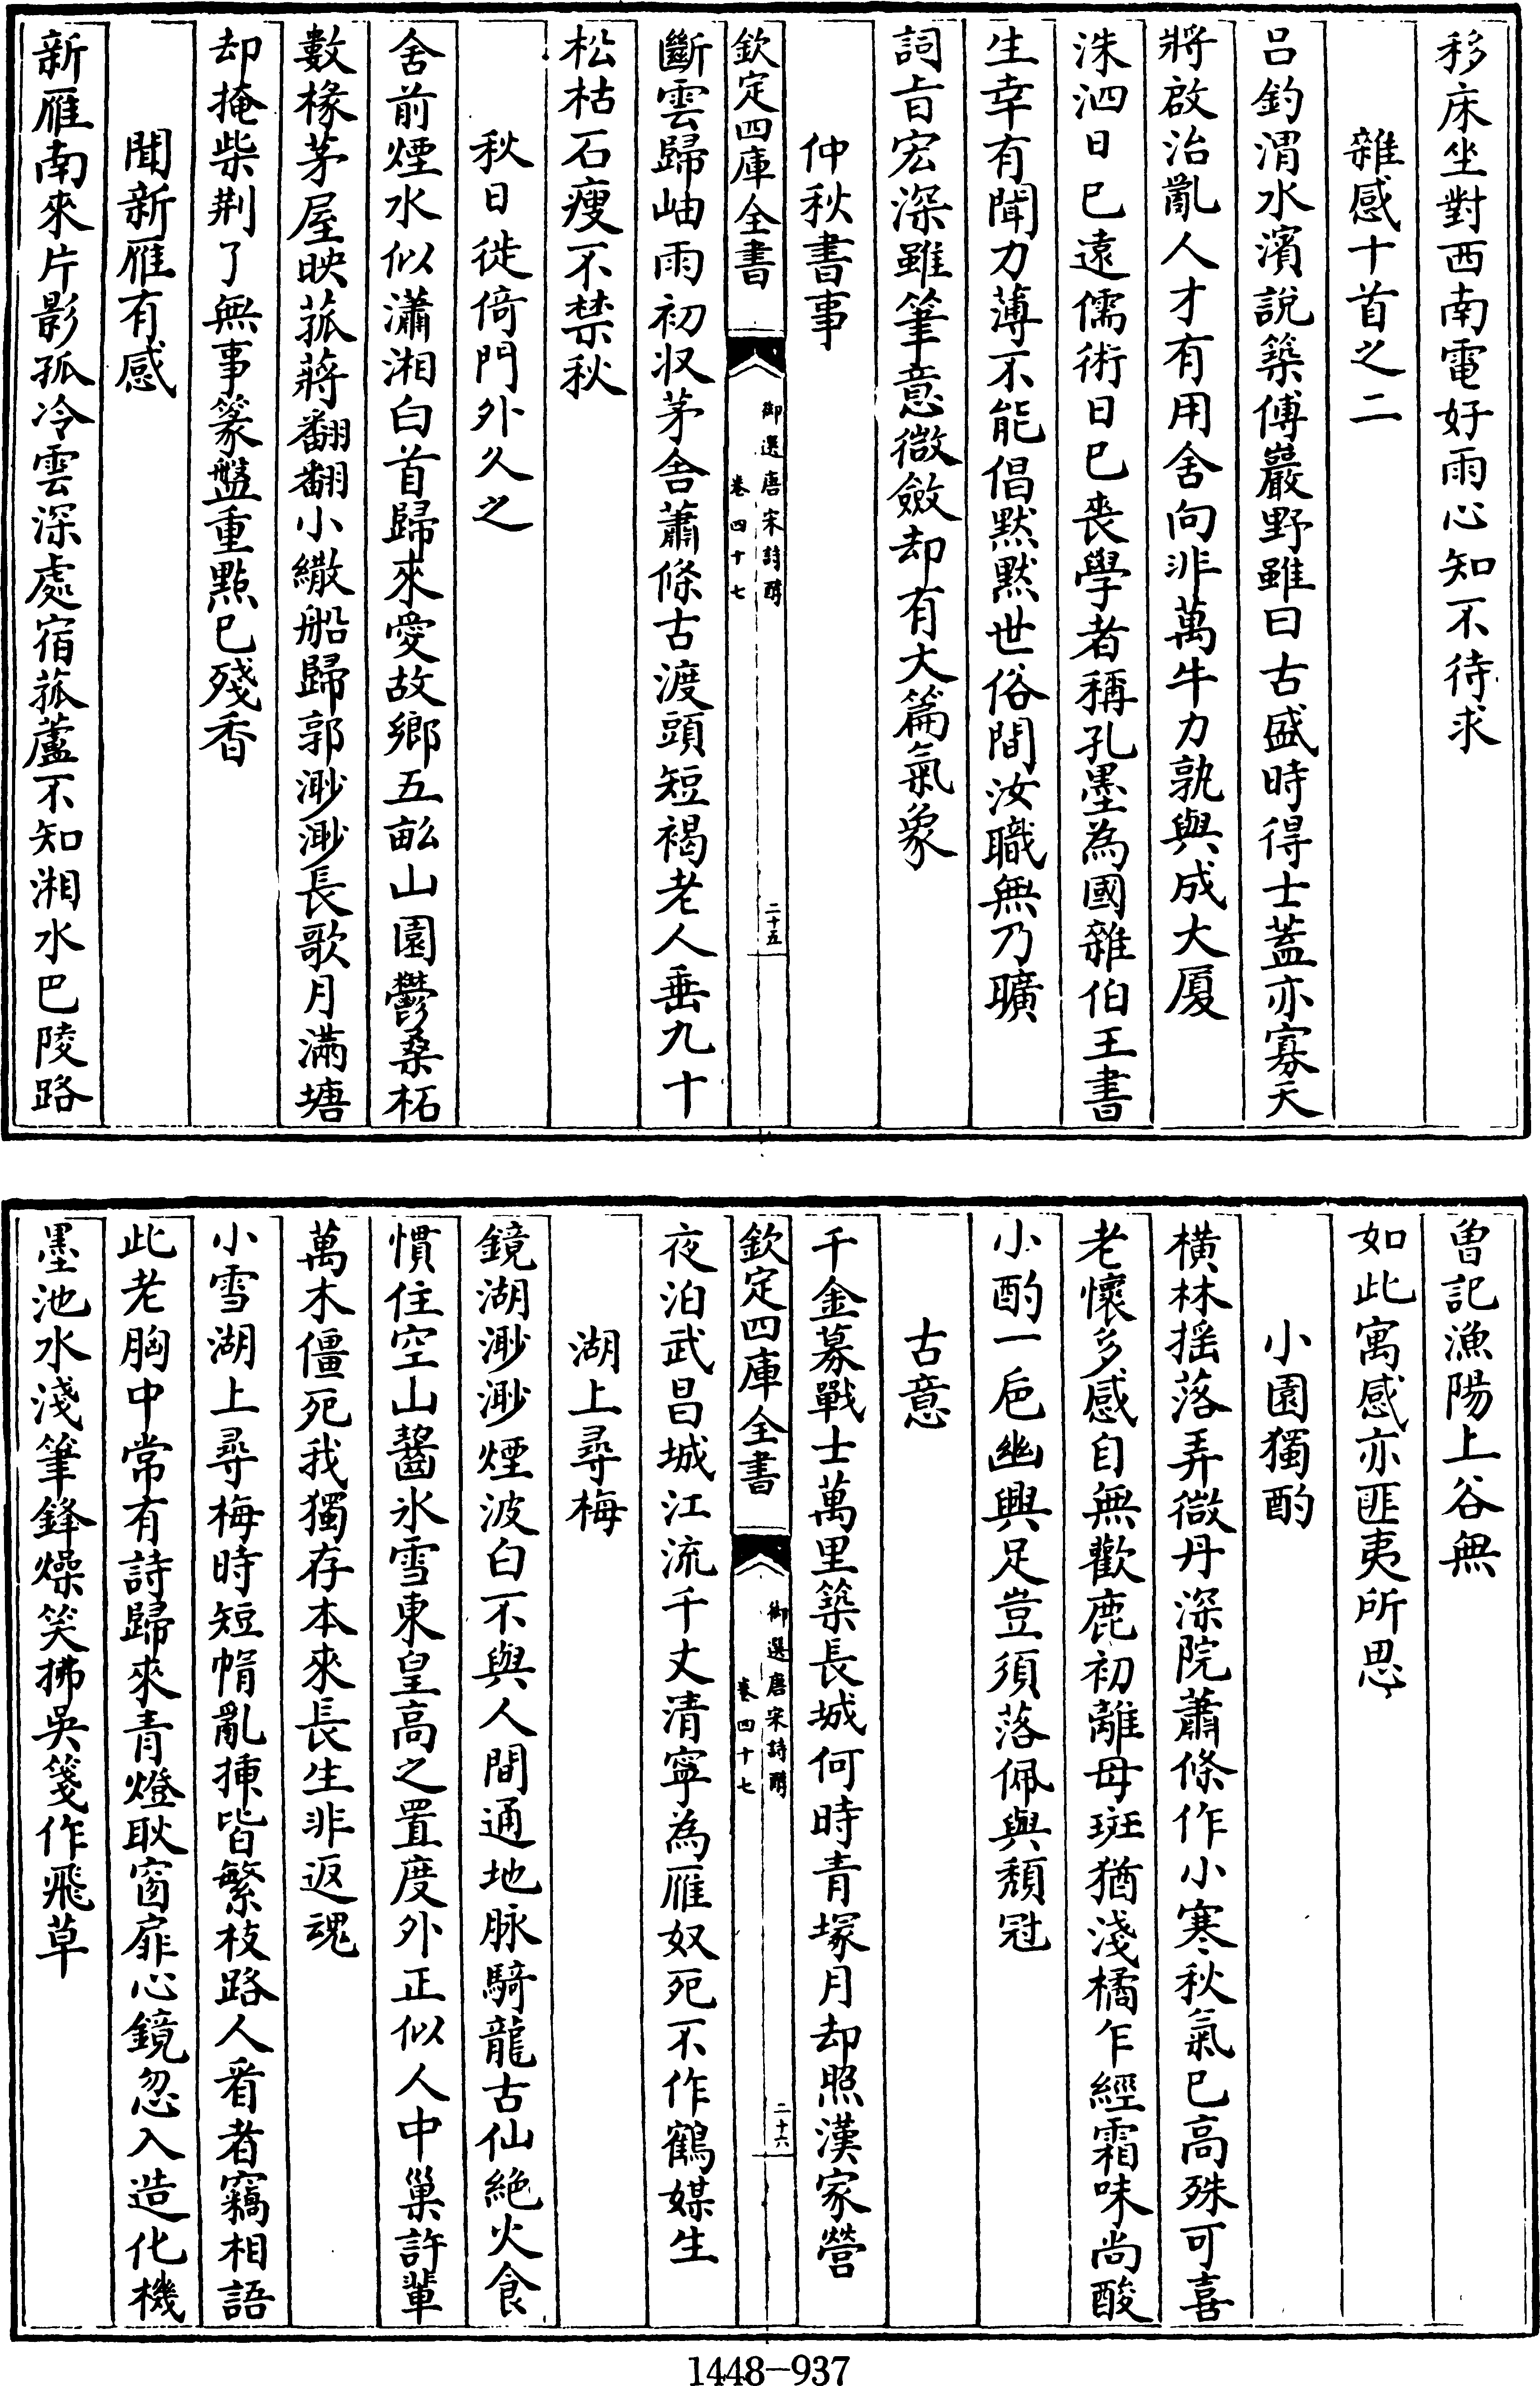 移床坐對西南電好雨心知不待求
雜感十首之二
呂釣渭水濱說築傅巖野雖曰古盛時得士蓋亦寡天
將啟治亂人才有用舍向非萬牛力孰與成大厦
洙泗日已遠儒術日已喪學者稱孔墨為國雜伯王書
生幸有聞力薄不能倡默默世俗間汝職無乃曠
詞旨宏深雖筆意微斂却有大篇氣象
仲秋書事
欽定四庫全書
御選唐宋詩醇
卷四十七
二十五
斷雲歸岫雨初收茅舍蕭條古渡頭短褐老人垂九十
松枯石瘦不禁秋
秋日徙倚門外久之
舍前煙水似瀟湘白首歸來愛故鄉五畝山園鬱桑柘
數椽茅屋映菰蔣翻翻小繖船歸郭渺渺長歌月滿塘
却掩柴荆了無事篆盤重點已殘香
聞新雁有感
新雁南來片影孤冷雲深處宿菰蘆不知湘水巴陵路
曽記漁陽上谷無
如此寓感亦匪夷所思
小園獨酌
橫林揺落弄微丹深院蕭條作小寒秋氣已高殊可喜
老懷多感自無歡鹿初離母斑猶淺橘乍經霜味尚酸
小酌一巵幽興足豈須落佩與頹冠
古意
千金募戰士萬里築長城何時青塚月却照漢家營
欽定四庫全書
御選唐宋詩醇
卷四十七
二十六
夜泊武昌城江流千丈清寧為雁奴死不作鶴媒生
湖上尋梅
鏡湖渺渺煙波白不與人間通地脉騎龍古仙絶火食
慣住空山齧氷雪東皇高之置度外正似人中巢許輩
萬木僵死我獨存本來長生非返魂
小雪湖上尋梅時短帽亂揷皆繁枝路人看者竊相語
此老胸中常有詩歸來青燈耿窗扉心鏡忽入造化機
墨池水淺筆鋒燥笑拂吳箋作飛草
1448-937